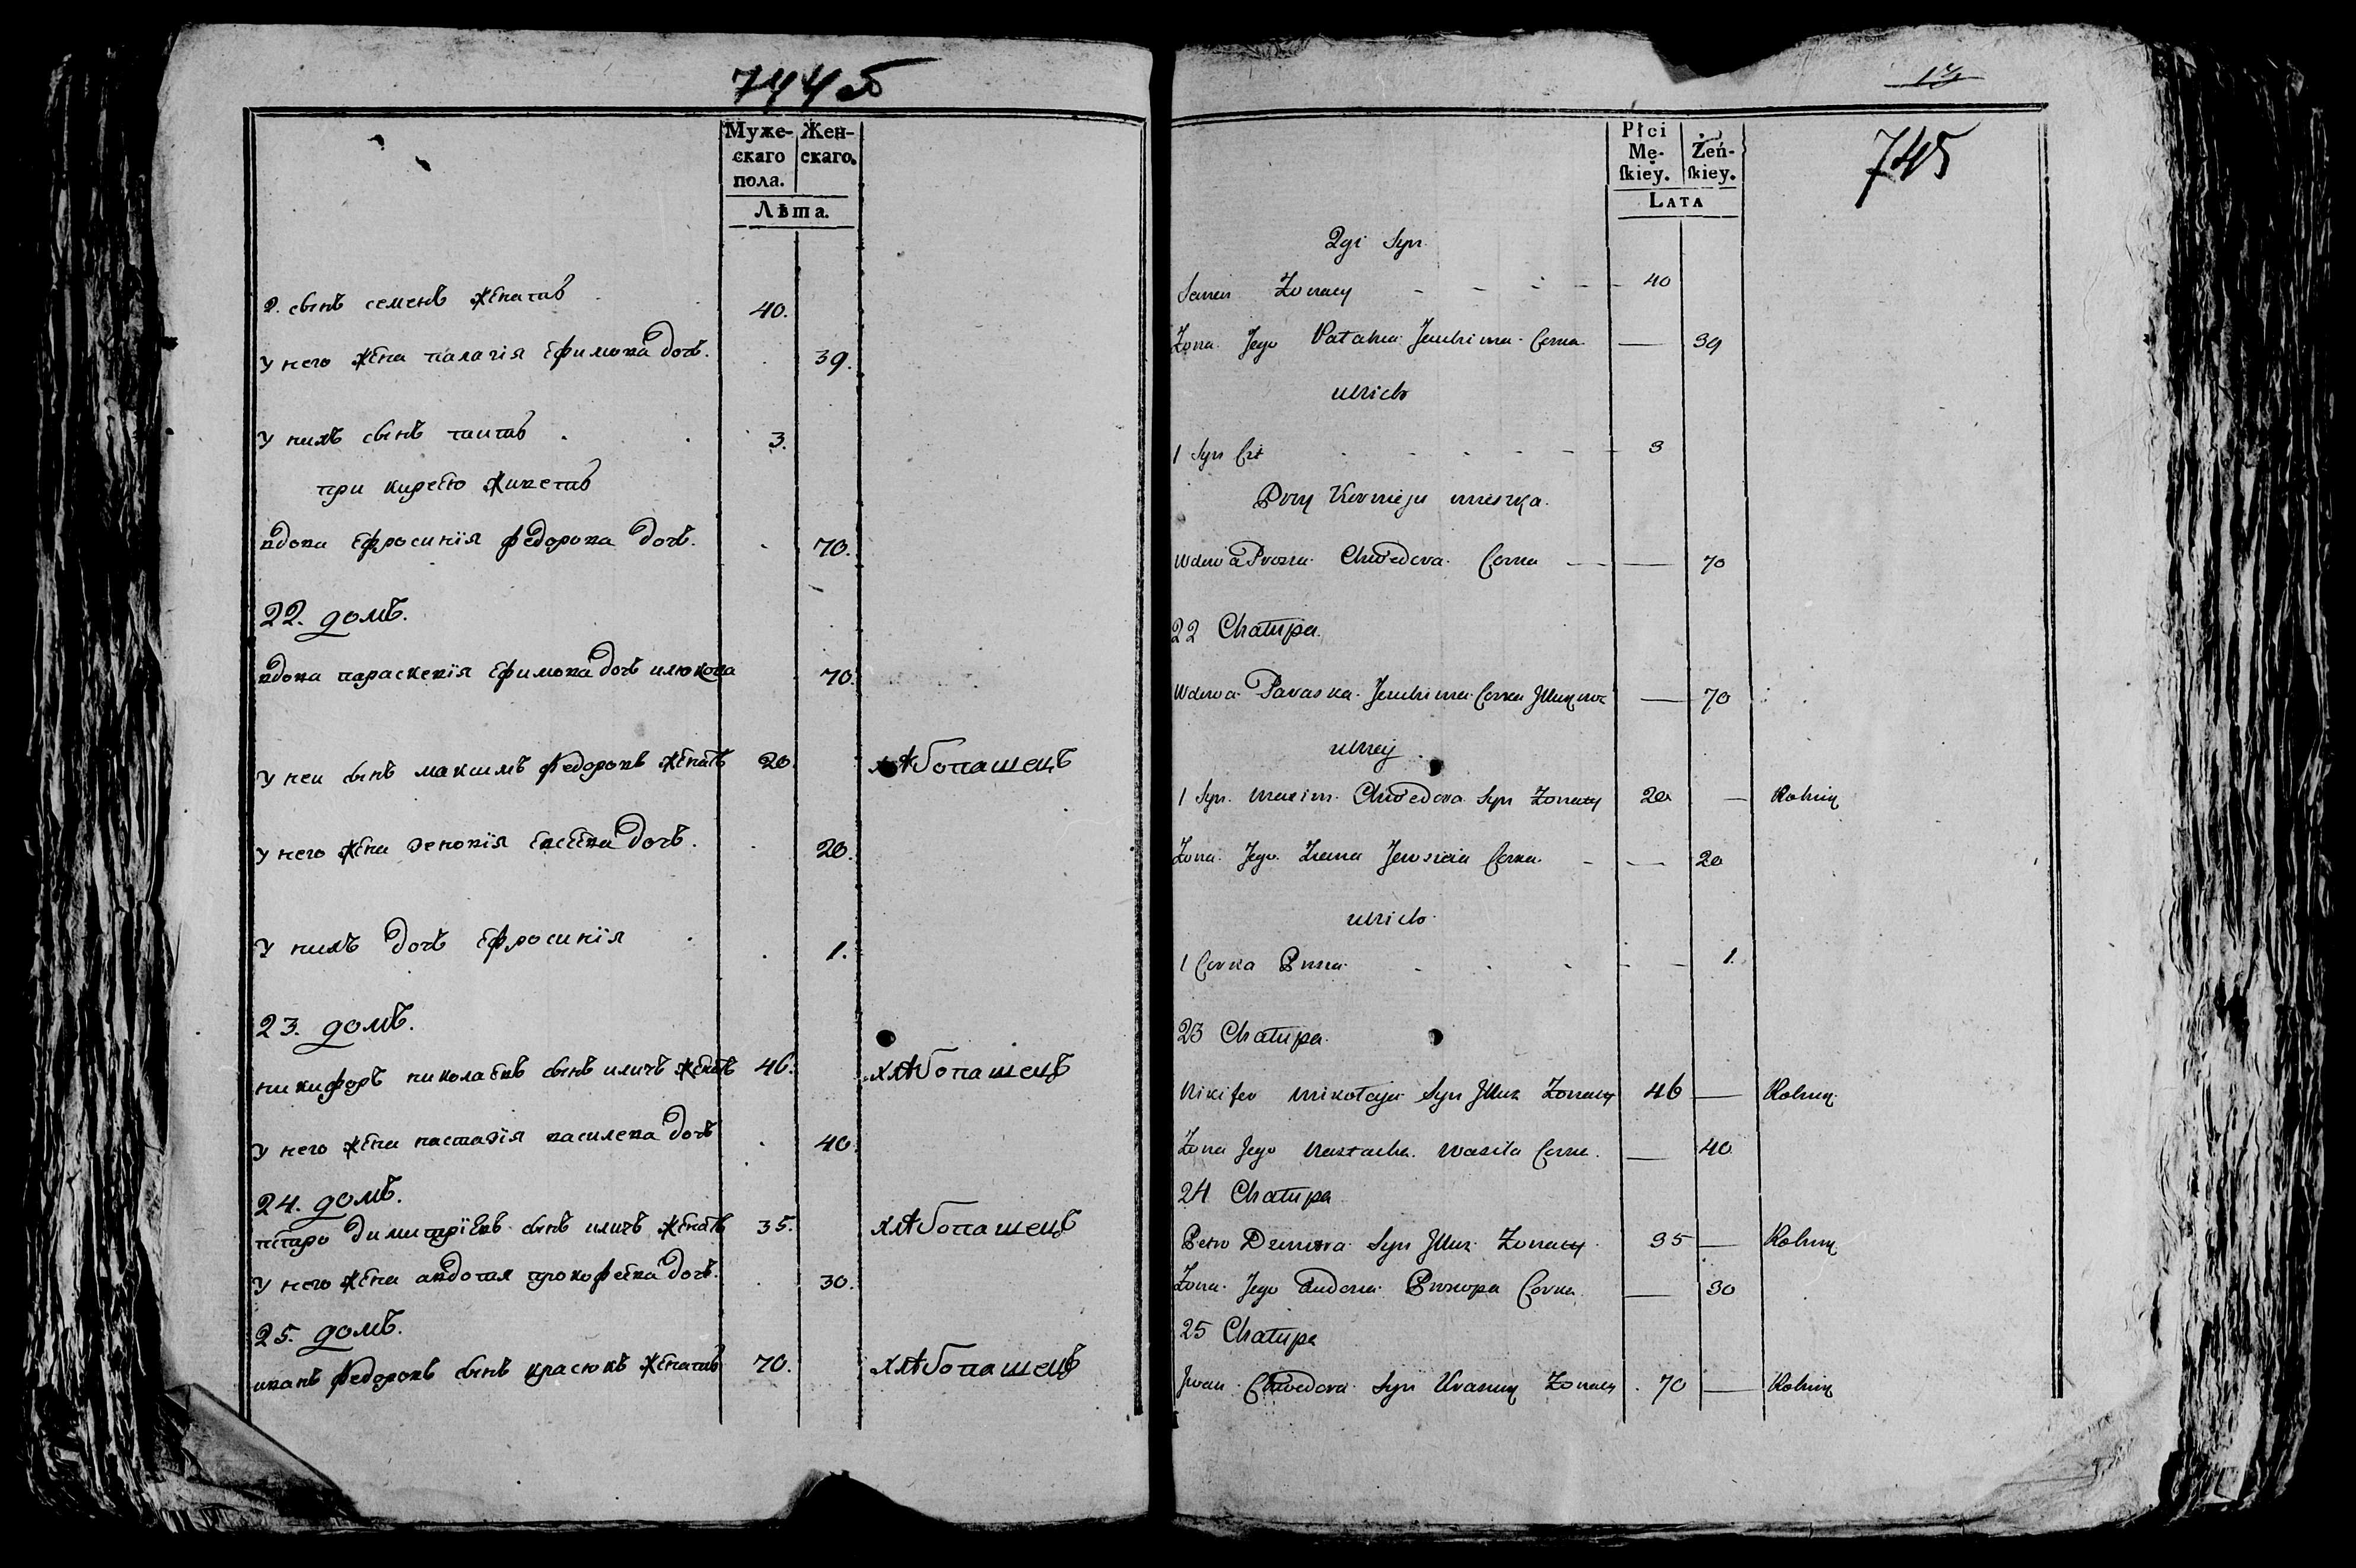 744 б
Муже- Жен-
скаго скаго.
пола.
Лѣта.
2. сынъ семенъ женатъ 40.
у него жена палагія ефимова дочь. 39.
у нихъ сынъ титъ 3.
при кирею живетъ
вдова ефросинія федорова дочь. 70.
22. домъ.
вдова параскевія ефимова дочь илюкова 70.
у неи сынъ максимъ федоровъ женатъ 20. хлѣбопашецъ
у него жена зеновія евсеева дочь. 20.
у нихъ дочь ефросинія 1.
23. домъ.
никифоръ николаевъ сынъ иличъ женатъ 46. хлѣбопашецъ
у него жена настазія василева дочь 40.
24. домъ.
петро димитріевъ сынъ иличъ женатъ 35. хлѣбопашецъ
у него жена авдотия прокофева дочь. 30.
25. домъ.
иванъ федоровъ сынъ красюкъ женатъ 70. хлѣбопашецъ
13
745
Płci Żeń-
Mę- skiey.
skiey.
LATA
2gi Syn
Semen Żonaty 40
Żona Jego Jeuchima Corka 39
u nich
1 Syn 3
Przy mieszka
Wdowa Prosia Chwedora Corka 70
22 Chałupa
Wdowa Paraska Jeuchima Corka 70
u niey
1 Syn Maxim Chwedora Syn Żonaty 20 Rolnik
Żona Jego Corka 20
u nich
1 Corka 1.
23 Chałupa
Nikifor Mikołaja Syn Żonaty 46 Rolnik
Żona Jego Nastazia Wasila Corka 40
24 Chałupa
Petro Dmitra Syn Żonaty 35 Rolnik
Żona Jego Prokopa Corka 30
25 Chałupa
Jwan Chwedora Syn Krasiuk Żonaty 70 Rolnik